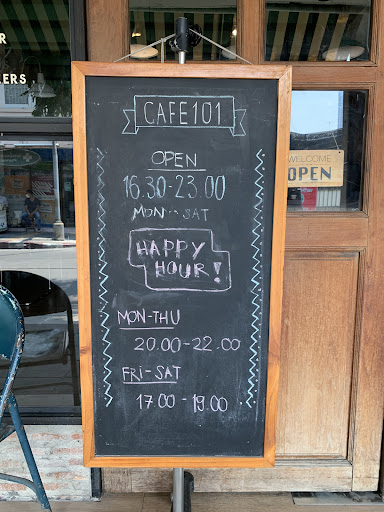 R
ERS
CAFE101
OPEN
16.30-23.00
MON-SAT
HAPPY
HOUR!
MON-THU
20.00-22.00
FRI-SAT
17.00-19.00
WELCOME
OPEN